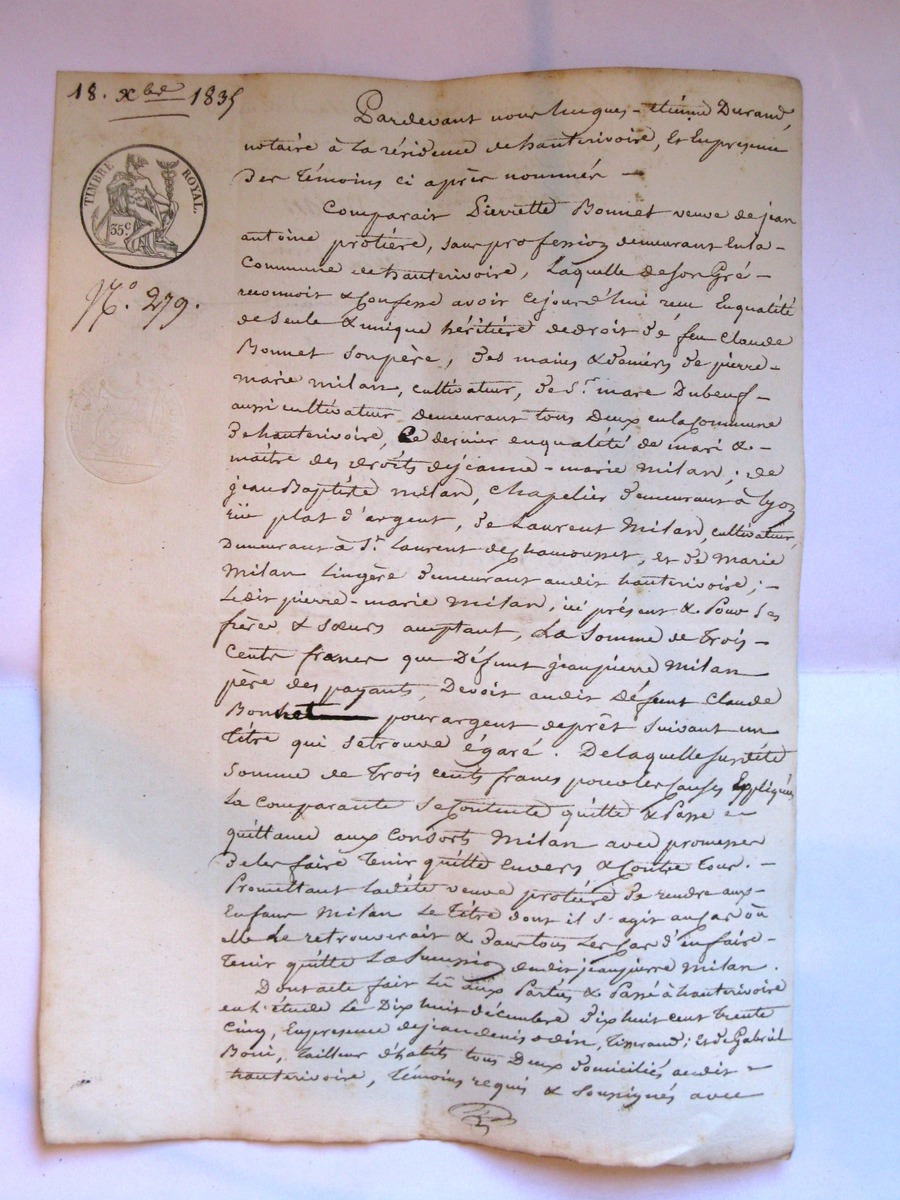 18. Xbre 1835
TIMBRE ROYAL.
35c
No. 279.
Pardevant nous hugues-étienne Durand,
notaire à la résidence de hauterivoire, Et En presence
Des témoins ci après nommés —
Comparait Pierrette Bonnet veuve de jean
antoine protière, sans profession demeurant En la-
Commune de hauterivoire, Laquelle de son Gré-
reconnoit & Confesse avoir cejourd'hui reçu En qualité
de Seule & unique héritière de droit de feu Claude
Bonnet son père, des mains & deniers de pierre-
marie milan, cultivateur, de St. marc Dubeuf-
aussi cultivateur, demeurant tous Deux en la Commune
de hauterivoire, Ce dernier en qualité de mari &-
maître des droits de jeanne-marie milan; de
jean Baptiste milan, chapelier demeurant à Lyon
rüe plat d'argent, de Laurent Milan, cultivateur,
Demeurant à St. Laurent de chamousset, et de Marie
Milan Lingère demeurant audit hauterivoire;-
Ledit pierre-marie milan, ici présent & Pour Ses
frères & sœurs acceptant, La Somme de trois-
Cents francs que Défunt jean pierre Milan
père des payants, Devoit audit Défunt Claude
Bonnet pour argent de prêt suivant un
Titre qui se trouve égaré. De laquelle susdite
Somme de Trois cents francs pour les causes Expliquées
La comparante se Contente quitte & Passe
quittance aux Consorts Milan avec promesse
de les faire Tenir quitte Envers & Contre Tous.-
Promettant ladite veuve protière de rendre aux-
Enfans Milan Le Titre dont il s'agit au cas où
Elle Le retrouverait & dans tous Les cas d'en faire-
Tenir quitte La Succession dudit jean pierre Milan.
Dont acte fait Lu aux Parties & Passé à hauterivoire
en l'étude Le Dix huit décembre Dix huit cent trente
Cinq, En presence de jean denis odin, Tisserand; Et de Gabriel
Boni, tailleur d'habits tous Deux domiciliés audit
hauterivoire, Témoins requis & soussignés avec